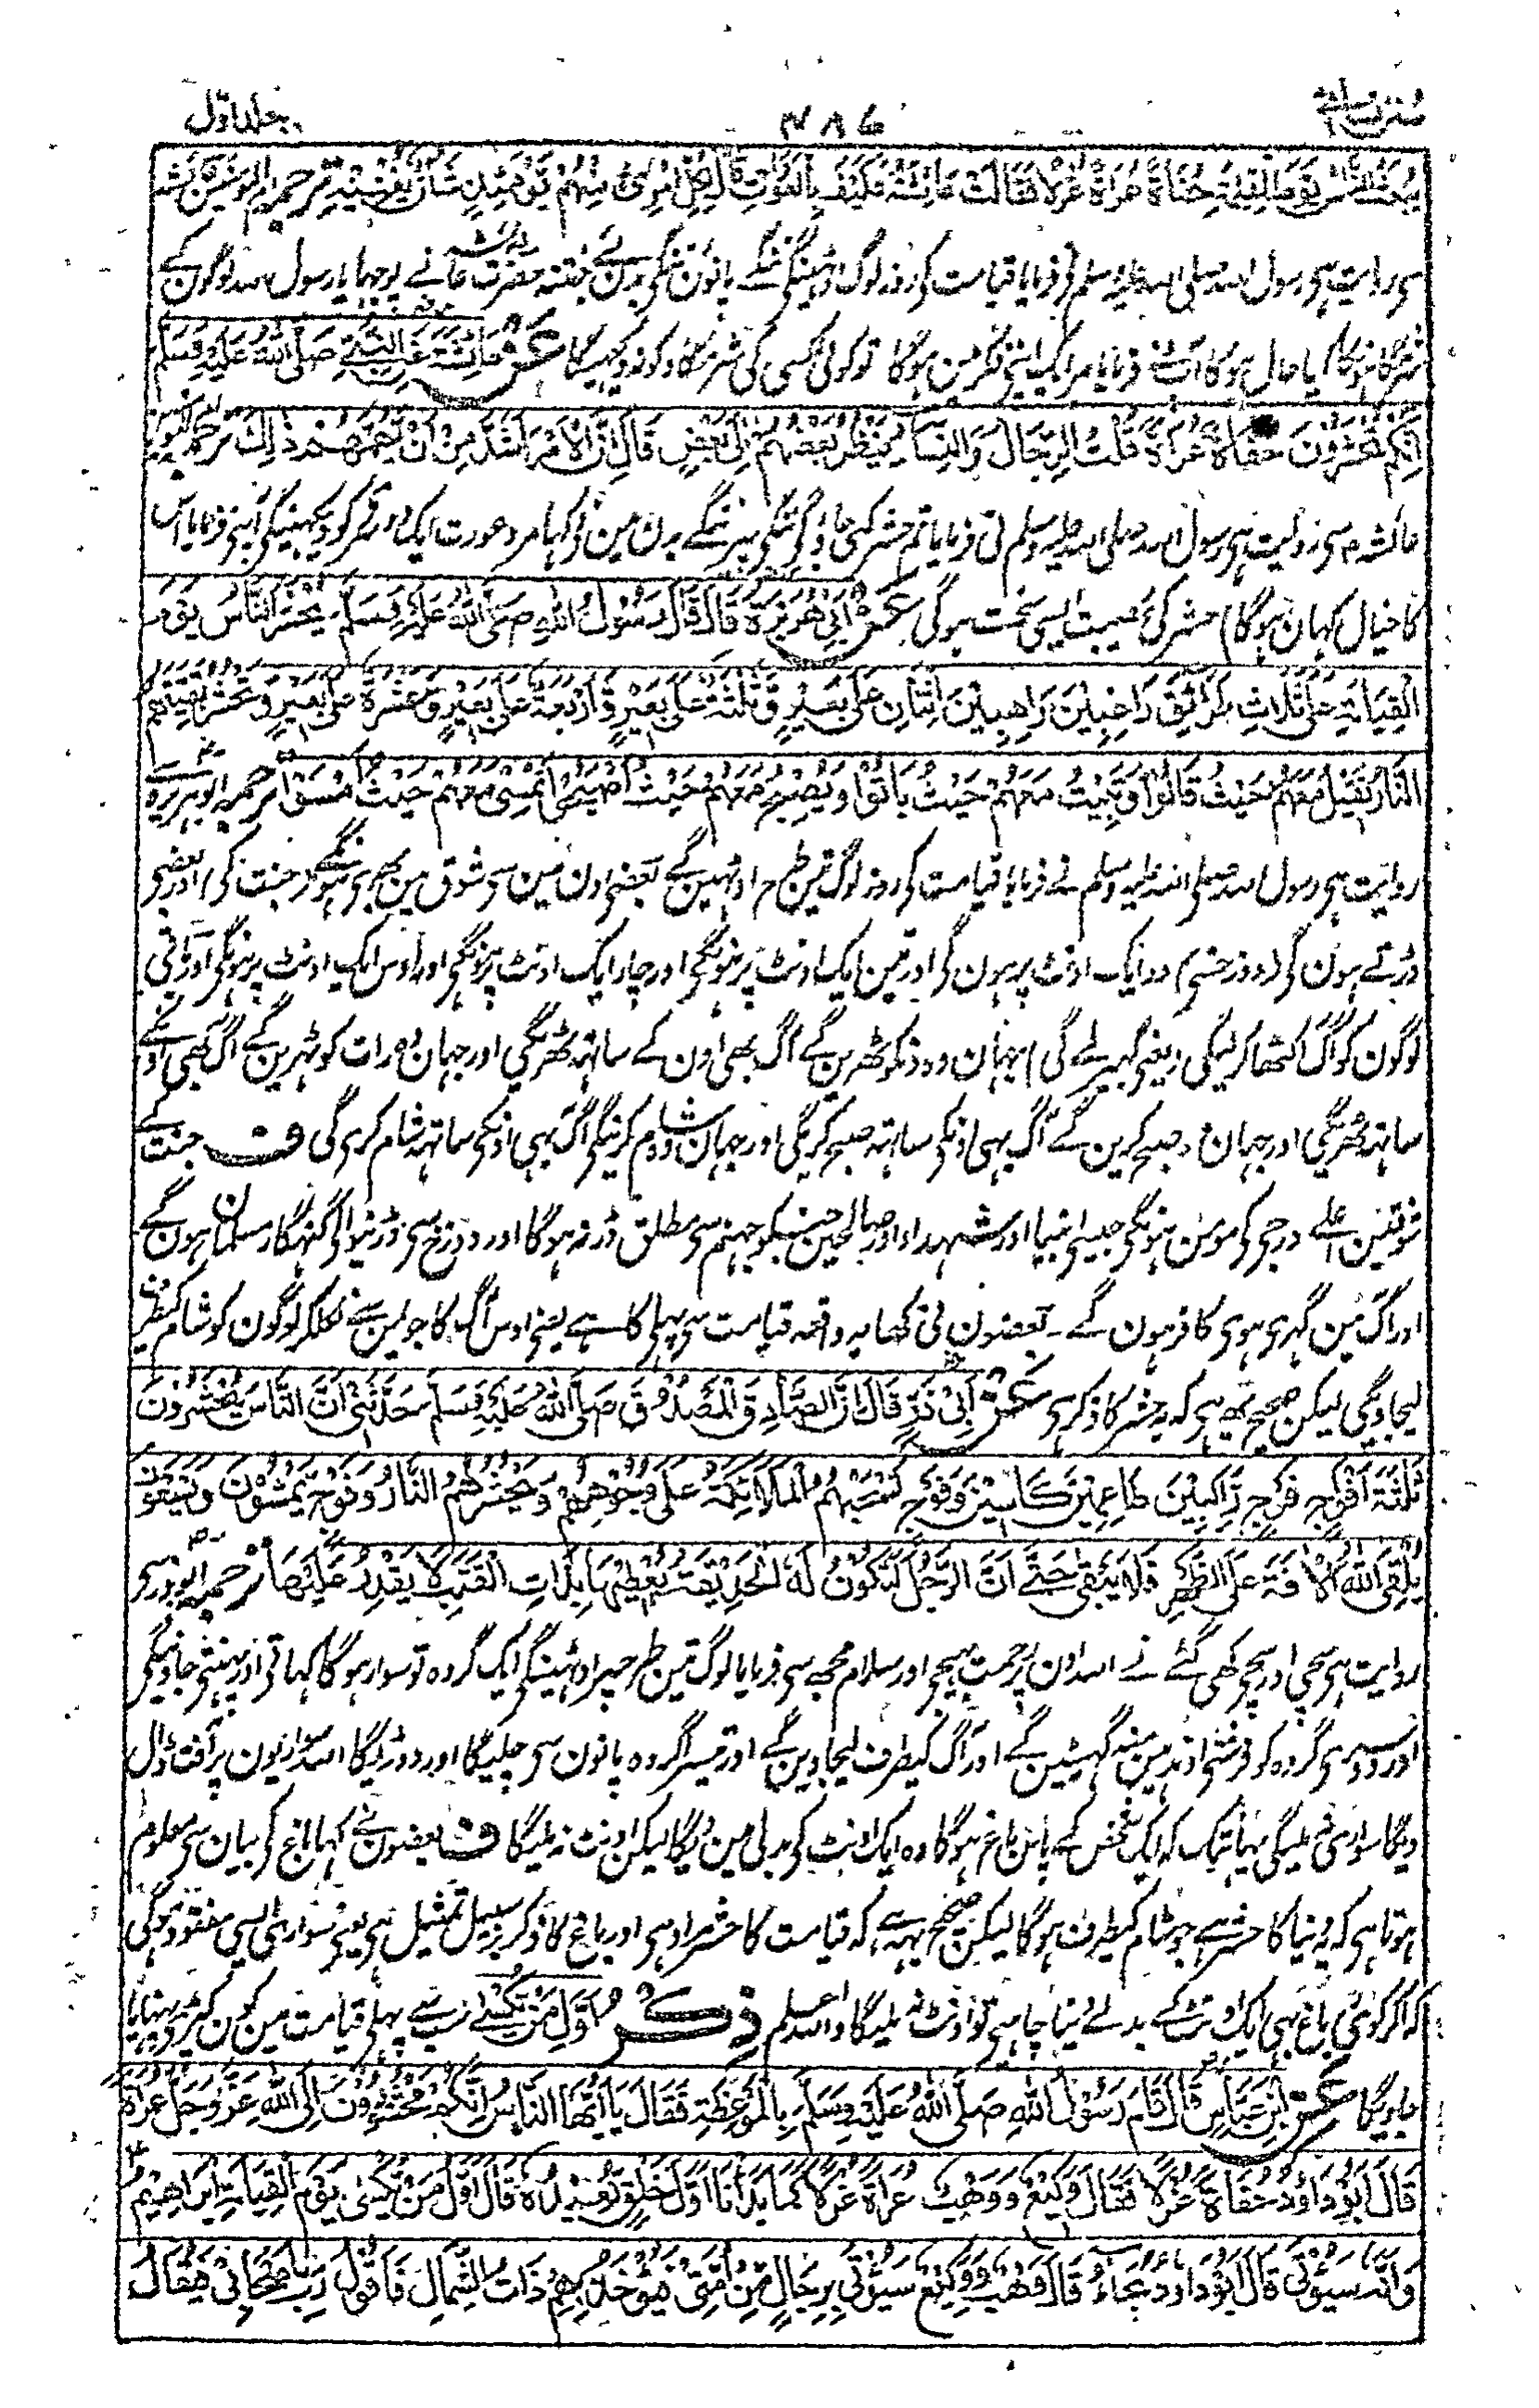 سنن نسائی ۴۸۶ جلد اول
يُحْشَرُ النَّاسُ يَوْمَ الْقِيٰمَةِ حُفَاةً عُرَاةً غُرْلًا فَقَالَتْ عَائِشَةُ فَكَيْفَ بِالْعَوْرَاتِ قَالَ لِكُلِّ امْرِئٍ مِنْهُمْ يَوْمَئِذٍ شَأْنٌ يُغْنِيْهِ ترجمہ ام المومنین عائشہ
سی روایت ہی رسول اللہ صلی اللہ علیہ وسلم نی فرمایا قیامت کی روز لوگ اوٹھینگی ننگے پانون ننگی بدن بے ختنہ حضرت عائشہ نے پوچھا یا رسول اللہ لوگون کے
شرمگاہونکا کیا حال ہوگا آپنے فرمایا ہر ایک اپنی فکر مین ہوگا تو کوئی کسی کی شرمگاہ کو نہ دیکہیگا عَنْ عَائِشَةَ عَنِ النَّبِيِّ صَلَّى اللّٰهُ عَلَيْهِ وَسَلَّمَ
اِنَّكُمْ تُحْشَرُوْنَ حُفَاةً عُرَاةً قُلْتُ الرِّجَالُ وَالنِّسَاءُ يَنْظُرُ بَعْضُهُمْ اِلٰى بَعْضٍ قَالَ اِنَّ الْاَمْرَ اَشَدُّ مِنْ اَنْ يُهِمَّهُمْ ذٰلِكَ ترجمہ ام المومنین
عائشہ رض سی روایت ہی رسول اللہ صلی اللہ علیہ وسلم نی فرمایا تم حشر کئی جاؤ گی ننگی پیر ننگے بدن مین نی کہا مرد عورت ایک دوسرکو دیکہینگی آپنی فرمایا اس
کا خیال کہان ہوگا) حشر کی مصیبت ایسی سخت ہوگی عَنْ اَبِيْ هُرَيْرَةَ قَالَ قَالَ رَسُوْلُ اللّٰهِ صَلَّى اللّٰهُ عَلَيْهِ وَسَلَّمَ يُحْشَرُ النَّاسُ يَوْمَ
الْقِيَامَةِ عَلٰى ثَلَاثِ طَرَائِقَ رَاغِبِيْنَ رَاهِبِيْنَ اِثْنَانِ عَلٰى بَعِيْرٍ وَّثَلٰثَةٌ عَلٰى بَعِيْرٍ وَّاَرْبَعَةٌ عَلٰى بَعِيْرٍ وَّعَشَرَةٌ عَلٰى بَعِيْرٍ وَّتَحْشُرُ بَقِيَّتَهُمُ
النَّارُ تَقِيْلُ مَعَهُمْ حَيْثُ قَالُوْا وَتَبِيْتُ مَعَهُمْ حَيْثُ بَاتُوْا وَتُصْبِحُ مَعَهُمْ حَيْثُ اَصْبَحُوْا وَتُمْسِيْ مَعَهُمْ حَيْثُ اَمْسَوْا ترجمہ ابوہریرہ سے
روایت ہی رسول اللہ صلی اللہ علیہ وسلم نے فرمایا قیامت کی روز لوگ تین طرح اوٹہین گے بعضی اون مین سی شوق مین بھری ہونگے (جنت کی) اور بعضی
ڈرتے ہون گی (دوزخسی) دو ایک اونٹ پر ہون گی اور تین ایک اونٹ پر ہونگی اور چار ایک اونٹ پر ہونگی اور دس ایک اونٹ پر ہونگی اور باقی
لوگون کو آگ اکٹھا کر لیگی (یعنی گہیر لے گی) جہان وہ دنکو ٹھرین گے آگ بھی اون کے ساتہہ ٹھریگی اور جہان وہ رات کو ٹہرین گے آگ بھی اونکے
ساتہہ ٹھریگی اور جہان وہ صبح کرین گے آگ بہی اونکی ساتہہ صبح کریگی اور جہان شام کرینگی آگ بہی اونکی ساتہہ شام کری گی ف جنت کے
شوقین اعلے درجی کی مومن ہونگی جیسی انبیا اور شہدا اور صالحین جنکو جہنم سی مطلق ڈر نہ ہوگا اور دوزخ سی ڈرنیوالی گنہگار مسلمان ہون گے
اور آگ مین گہری ہوی کافر ہون گے ۔ بعضون نی کہا یہ واقعہ قیامت سی پہلی کا ہے یعنی اوس آگ کا جو یمن سے نکلکر لوگون کو شام کیطرف
لیجاویگی لیکن صحیح یہی ہی کہ یہ حشر کا ذکر ہی عَنْ اَبِيْ ذَرٍّ قَالَ اِنَّ الصَّادِقَ الْمَصْدُوْقَ صَلَّى اللّٰهُ عَلَيْهِ وَسَلَّمَ حَدَّثَنِيْ اَنَّ النَّاسَ يُحْشَرُوْنَ
ثَلٰثَةَ اَفْوَاجٍ فَوْجٍ رَّاكِبِيْنَ طَاعِمِيْنَ كَاسِيْنَ وَفَوْجٍ تَسْحَبُهُمُ الْمَلَائِكَةُ عَلٰى وُجُوْهِهِمْ وَتَحْشُرُهُمُ النَّارُ وَفَوْجٍ يَّمْشُوْنَ وَيَسْعَوْنَ
يُلْقِي اللّٰهُ الْاٰفَةَ عَلَى الظَّهْرِ فَلَا يَبْقٰى حَتّٰى اَنَّ الرَّجُلَ لَتَكُوْنُ لَهُ الْحَدِيْقَةُ يُعْطِيْهَا بِذَاتِ الْقَتَبِ لَا يَقْدِرُ عَلَيْهَا ترجمہ ابوذر سی
روایت ہی سچی اور سچی کھی گئے نے اللہ اون پر رحمت بہیجی اور سلام مجھ سی فرمایا لوگ تین طرحپر اوٹہینگی ایک گروہ تو سوار ہوگا کہاتی اور پہنتی جاویگی
اور دوسری گروہ کو فرشتی اوندہی مونہہ گہسٹین گے اور آگ کیطرف لیجاوین گے اور تیسرا گروہ پانون سی چلیگا اور دوڑیگا اللہ سواریون پر آفت ڈال
دیگا سواری نہ ملیگی یہانتک کہ ایک شخص کے پاس باغ ہوگا وہ ایک اونٹ کی بدلی مین دیگا لیکن اونٹ نہ ملیگا ف بعضون نے کہا باغ کی بیان سی معلوم
ہوتا ہی کہ یہ دنیا کا حشر ہے جو شام کیطرف ہوگا لیکن صحیح یہہ ہے کہ قیامت کا حشر مراد ہی اور باغ کا ذکر بر سبیل تمثیل ہی یعنی سواری ایسی مفقود ہوگی
کہ اگر کوئی باغ بہی ایک اونٹ کے بدلے دینا چاہی تو اونٹ نہ ملیگا واللہ اعلم ذِكْرُ اَوَّلِ مَنْ يُّكْسٰى سب سے پہلی قیامت مین کون کپڑی پہنایا
جاویگا عَنِ ابْنِ عَبَّاسٍ قَالَ قَامَ رَسُوْلُ اللّٰهِ صَلَّى اللّٰهُ عَلَيْهِ وَسَلَّمَ بِالْمَوْعِظَةِ فَقَالَ يَا اَيُّهَا النَّاسُ اِنَّكُمْ مَحْشُوْرُوْنَ اِلَى اللّٰهِ عَزَّ وَجَلَّ عُرَاةً
قَالَ اَبُوْ دَاوُدَ حُفَاةً غُرْلًا فَقَالَ وَكِيْعٌ وَوَهْبٌ عُرَاةً غُرْلًا كَمَا بَدَاْنَا اَوَّلَ خَلْقٍ نُّعِيْدُهٗ قَالَ اَوَّلُ مَنْ يُّكْسٰى يَوْمَ الْقِيَامَةِ اِبْرَاهِيْمُ
وَاِنَّهٗ سَيُؤْتٰى قَالَ اَبُوْ دَاوُدَ يُجَاءُ قَالَ وَهْبٌ وَوَكِيْعٌ سَيُؤْتٰى بِرِجَالٍ مِّنْ اُمَّتِيْ فَيُؤْخَذُ بِهِمْ ذَاتَ الشِّمَالِ فَاَقُوْلُ رَبِّ اَصْحَابِيْ فَيُقَالُ